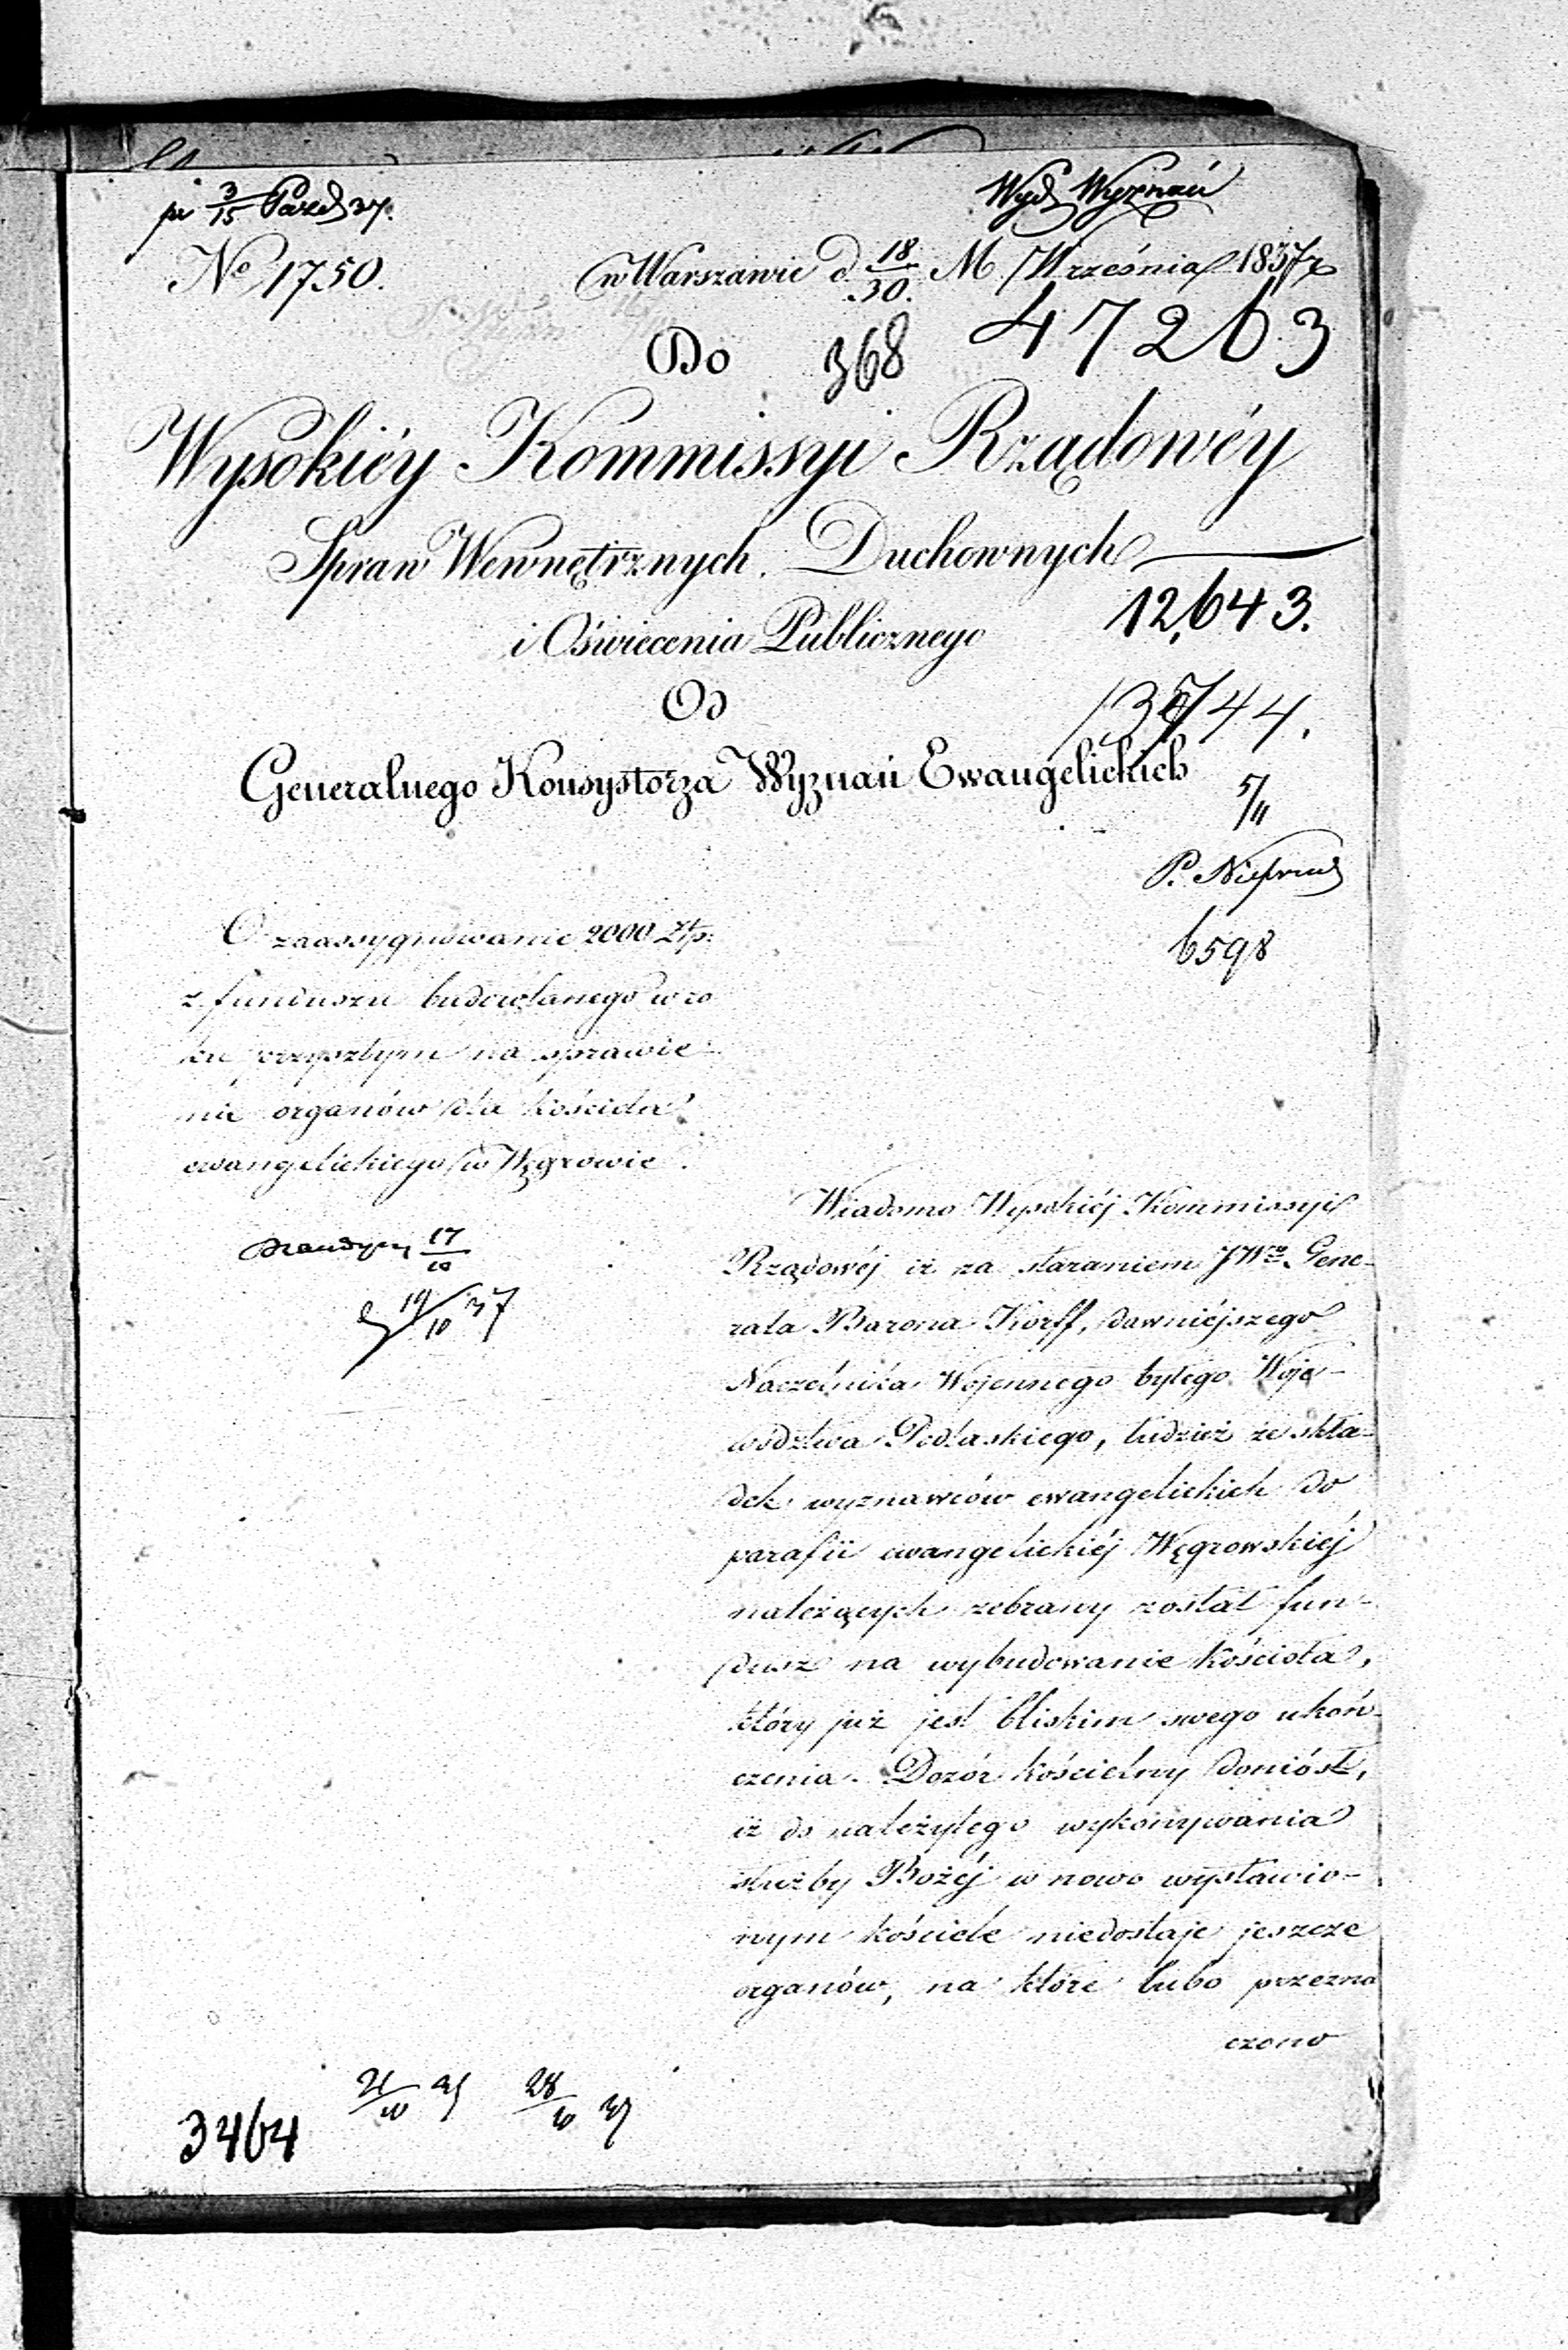 pr 3/15 Paźd 37.
Wydz Wyznań
No 1750.
w Warszawie d. 18/30. M. Września 1837 r
47263
Do
368
Wysokiéy Kommissyi Rządowéy
Spraw Wewnętrznych Duchownych
12,643.
i Oświecenia Publicznego
Od
Generalnego Konsystorza Wyznań Ewangelickich
5/11
6598
O zaassygnowanie 2000 Złp:
z funduszu budowlanego w ro
ku przyszłym na sprawie-
nie organów dla kościoła
ewangelickiego w Węgrowie.
17/10
19/10 37
Wiadomo Wysokiéj Kommissyi
Rządowéj iż za staraniem JWgo Gene-
rała Barona Korff, dawniéjszego
Naczelnika Wojennego byłego Woje-
wództwa Podlaskiego, tudzież ze skła-
dek wyznawców ewangelickich do
parafii ewangelickiéj Węgrowskiéj
należących zebrany został fun-
dusz na wybudowanie kościoła,
który już jest bliskim swego ukoń-
czenia. Dozór kościelny doniósł,
iż do należytego wykonywania
służby Bożéj w nowo wystawio-
nym kościele niedostaje jeszcze
organów, na które lubo przezna
czono
3464
28/10 37